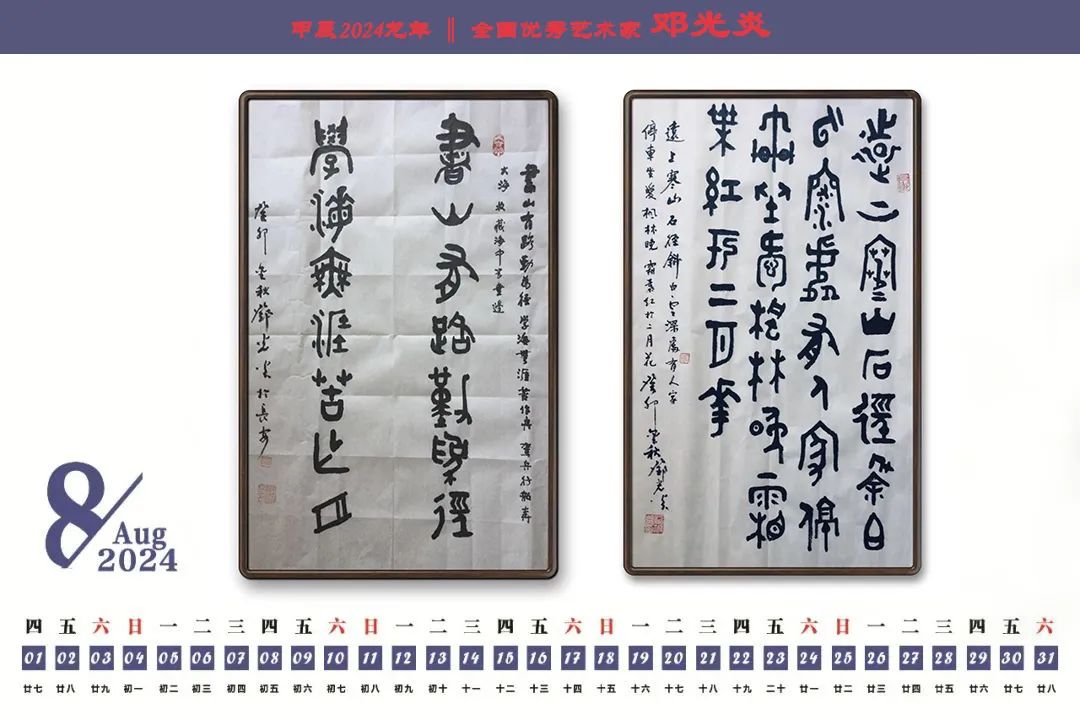 甲辰2024龙年 ‖ 全国优秀艺术家 邓光炎
書山有路勤为径 学海無涯苦作舟
書山有路勤為徑
學海無涯苦作舟
癸卯金秋鄧光炎於長安
遠上寒山石徑斜白
雲深處有人家停
車坐愛楓林晚霜
葉紅於二月花
遠上寒山石径斜白雲深處有人家
停車坐爱枫林晚霜葉红於二月花 癸卯金秋鄧光炎
8/Aug
2024
四 五 六 日 一 二 三 四 五 六 日 一 二 三 四 五 六 日 一 二 三 四 五 六 日 一 二 三 四 五 六
01 02 03 04 05 06 07 08 09 10 11 12 13 14 15 16 17 18 19 20 21 22 23 24 25 26 27 28 29 30 31
廿七 廿八 廿九 初一 初二 初三 初四 初五 初六 初七 初八 初九 初十 十一 十二 十三 十四 十五 十六 十七 十八 十九 二十 廿一 廿二 廿三 廿四 廿五 廿六 廿七 廿八